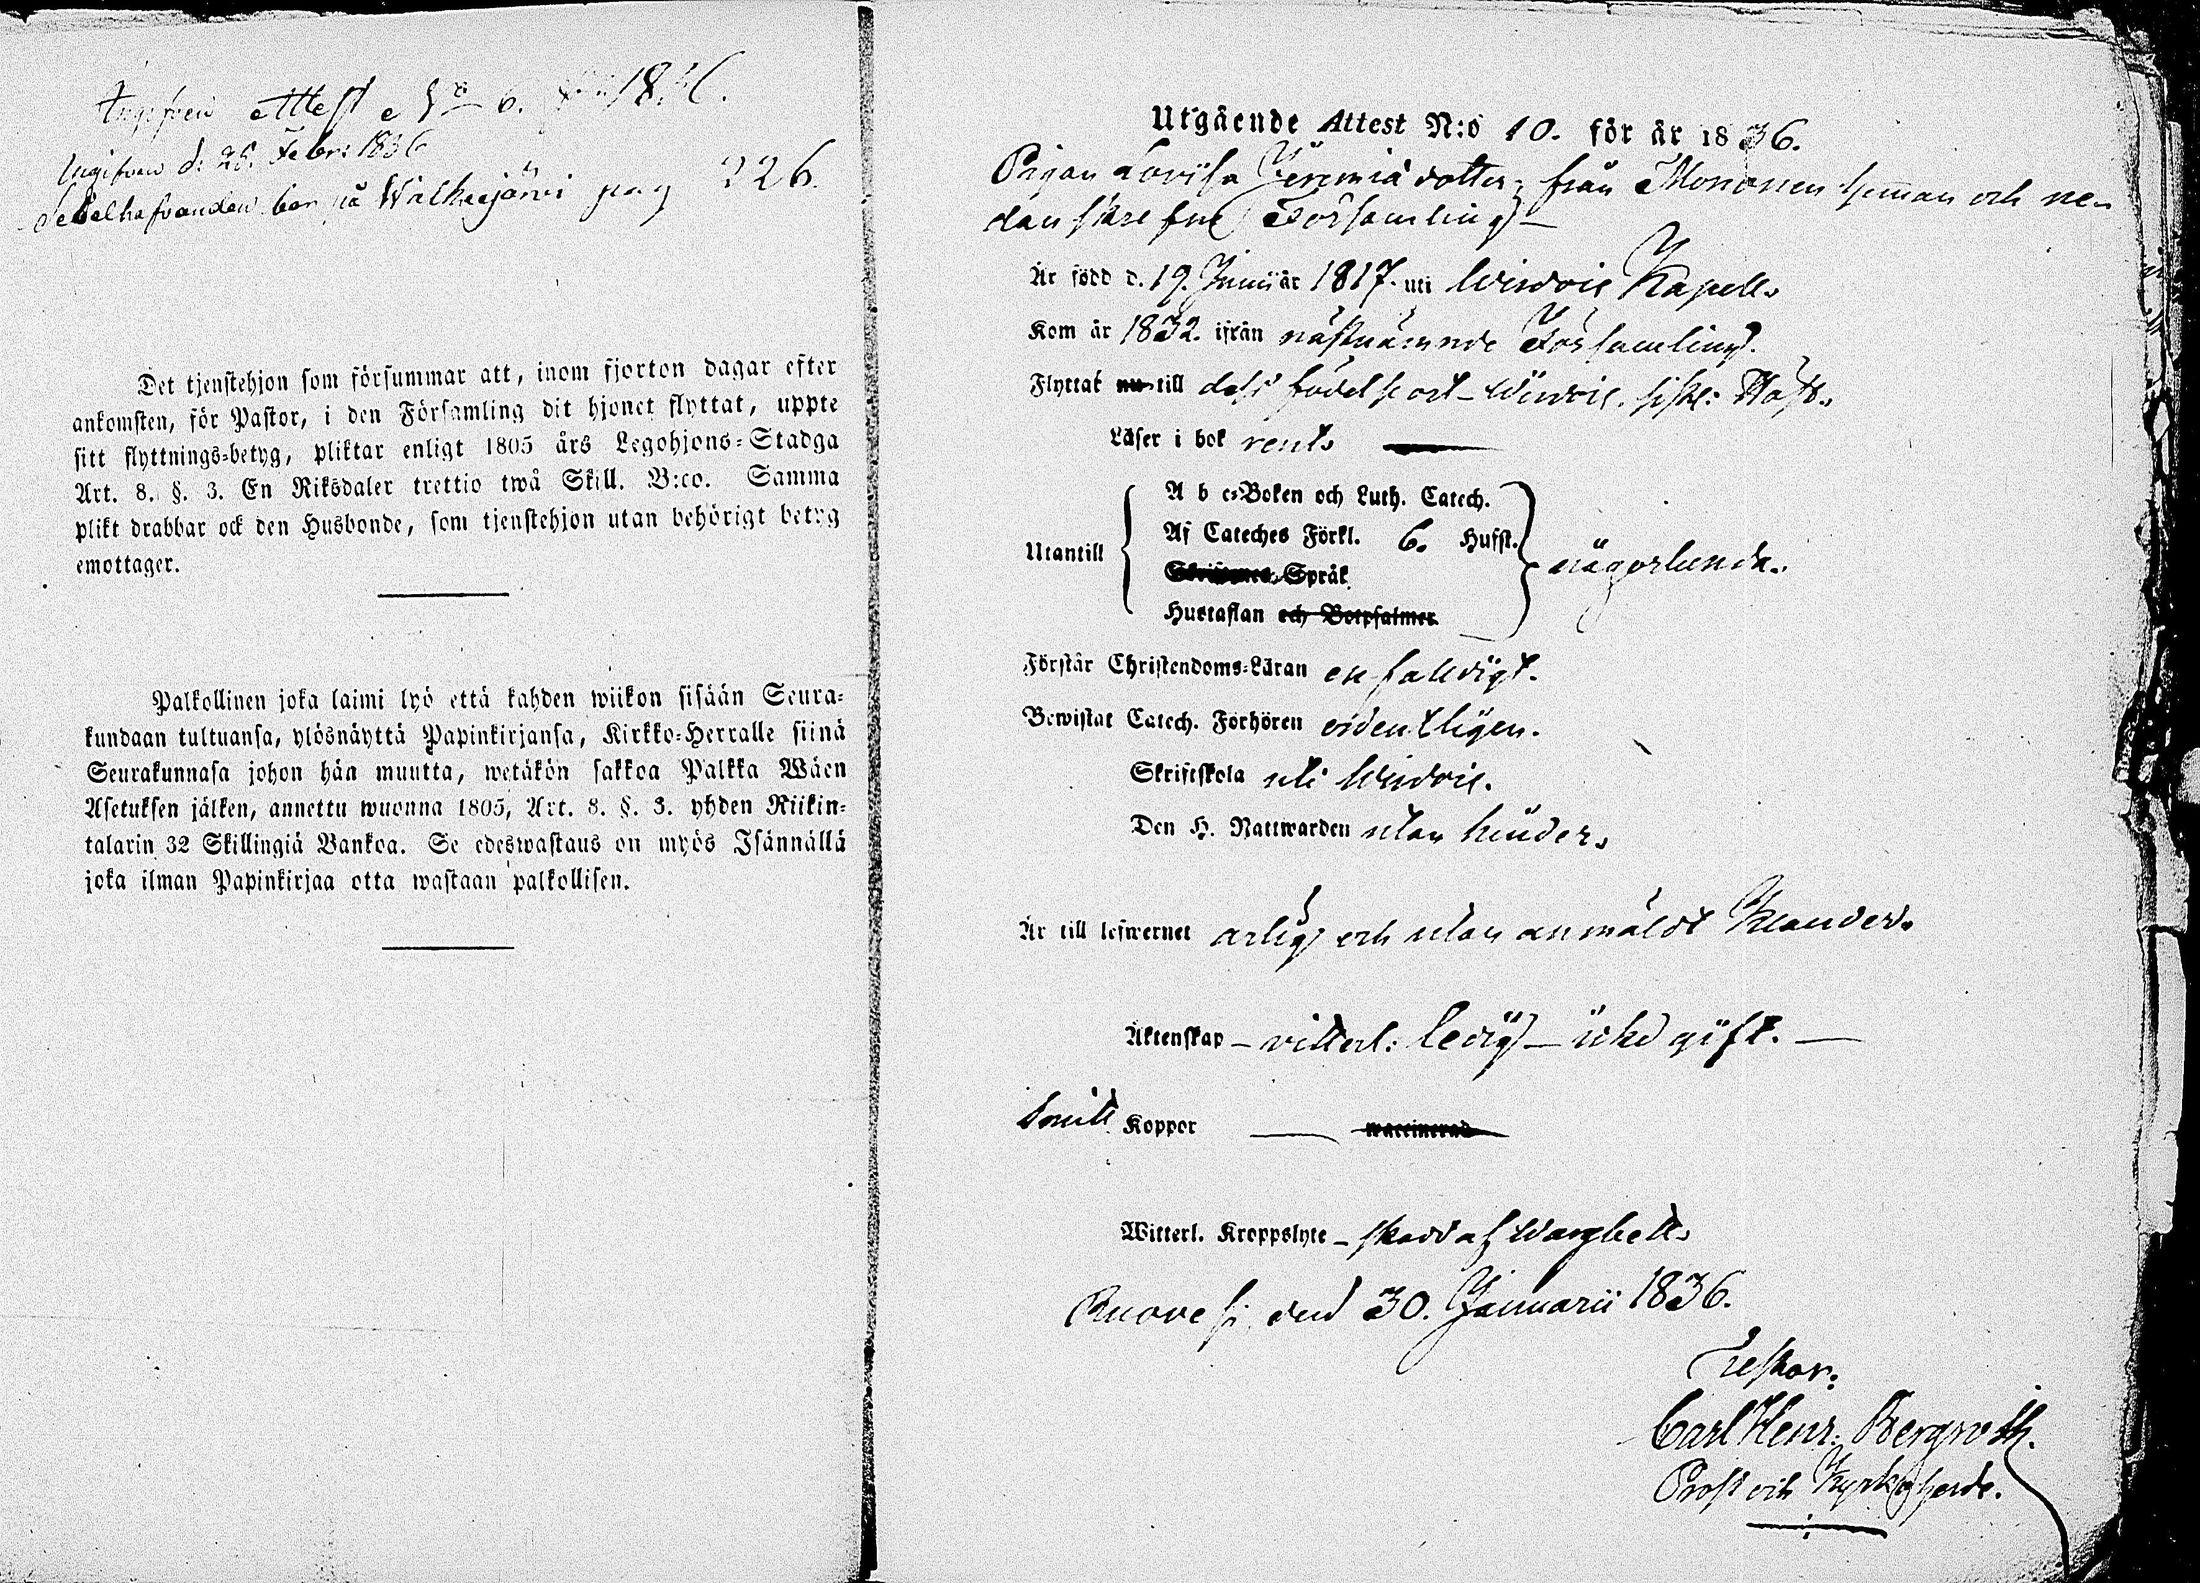 Ingifven Attest No 6. 1836.
Ingifven d: 28. Febr: 1836
bor på Walkeajärvi pag 226.
Det tjenstehjon som försummar att, inom fjorton dagar efter
ankomsten, för Pastor, i den Församling dit hjonet flyttat, uppte
sitt flyttnings-betyg, pliktar enligt 1805 års Legohjons-Stadga
Art. 8. §. 3. En Riksdaler trettio twå Skill. B:co. Samma
plikt drabbar ock den Husbonde, som tjenstehjon utan behörigt betyg
emottager.
Palkollinen joka laimi lyö että kahden wiikon sisään Seura-
kundaan tultuansa, ylösnäyttä Papinkirjansa, Kirkko-Herralle siinä
Seurakunnasa johon hän muutta, wetäkön sakkoa Palkka Wäen
Asetuksen jälken, annettu wuonna 1805, Art. 8. §. 3. yhden Riikin-
talarin 32 Skillingiä Bankoa. Se edeswastaus on myös Isännällä
joka ilman Papinkirjaa otta wastaan palkollisen.
Utgående Attest N:o 10. för år 1836.
Pigan Lovisa Jeremiädotter, från Mononen heman och ne-
danskrefne Församling
Är född d. 19. Junii år 1817. uti Wirdois Kapell.
Kom år 1832. ifrån nästnämnde Församling.
Flyttat nu till dess födelseort Wirdois.
Läser i bok rent.
Utantill
A b c-Boken och Luth. Catech.
Af Cateches Förkl. 6. Hufst.
Skriftenes Språk
Hustaflan och Botpsalmer
någorlunda.
Förstår Christendoms-Läran enfaldigt.
Bewistat Catech. Förhören ordentligen.
Skriftskola uti Wirdois.
Den H. Nattwarden utan hinder.
Är till lefwernet ärlig och utan anmäldt klander.
Äktenskap – vitterl: ledig – icke gift. –
haft Koppor waccinerad
Witterl. Kroppslyte – skadd af Wargbett.
Ruovesi, den 30. Januarii 1836.
Carl Henr: Bergroth.
Prost och Kyrkoherde.